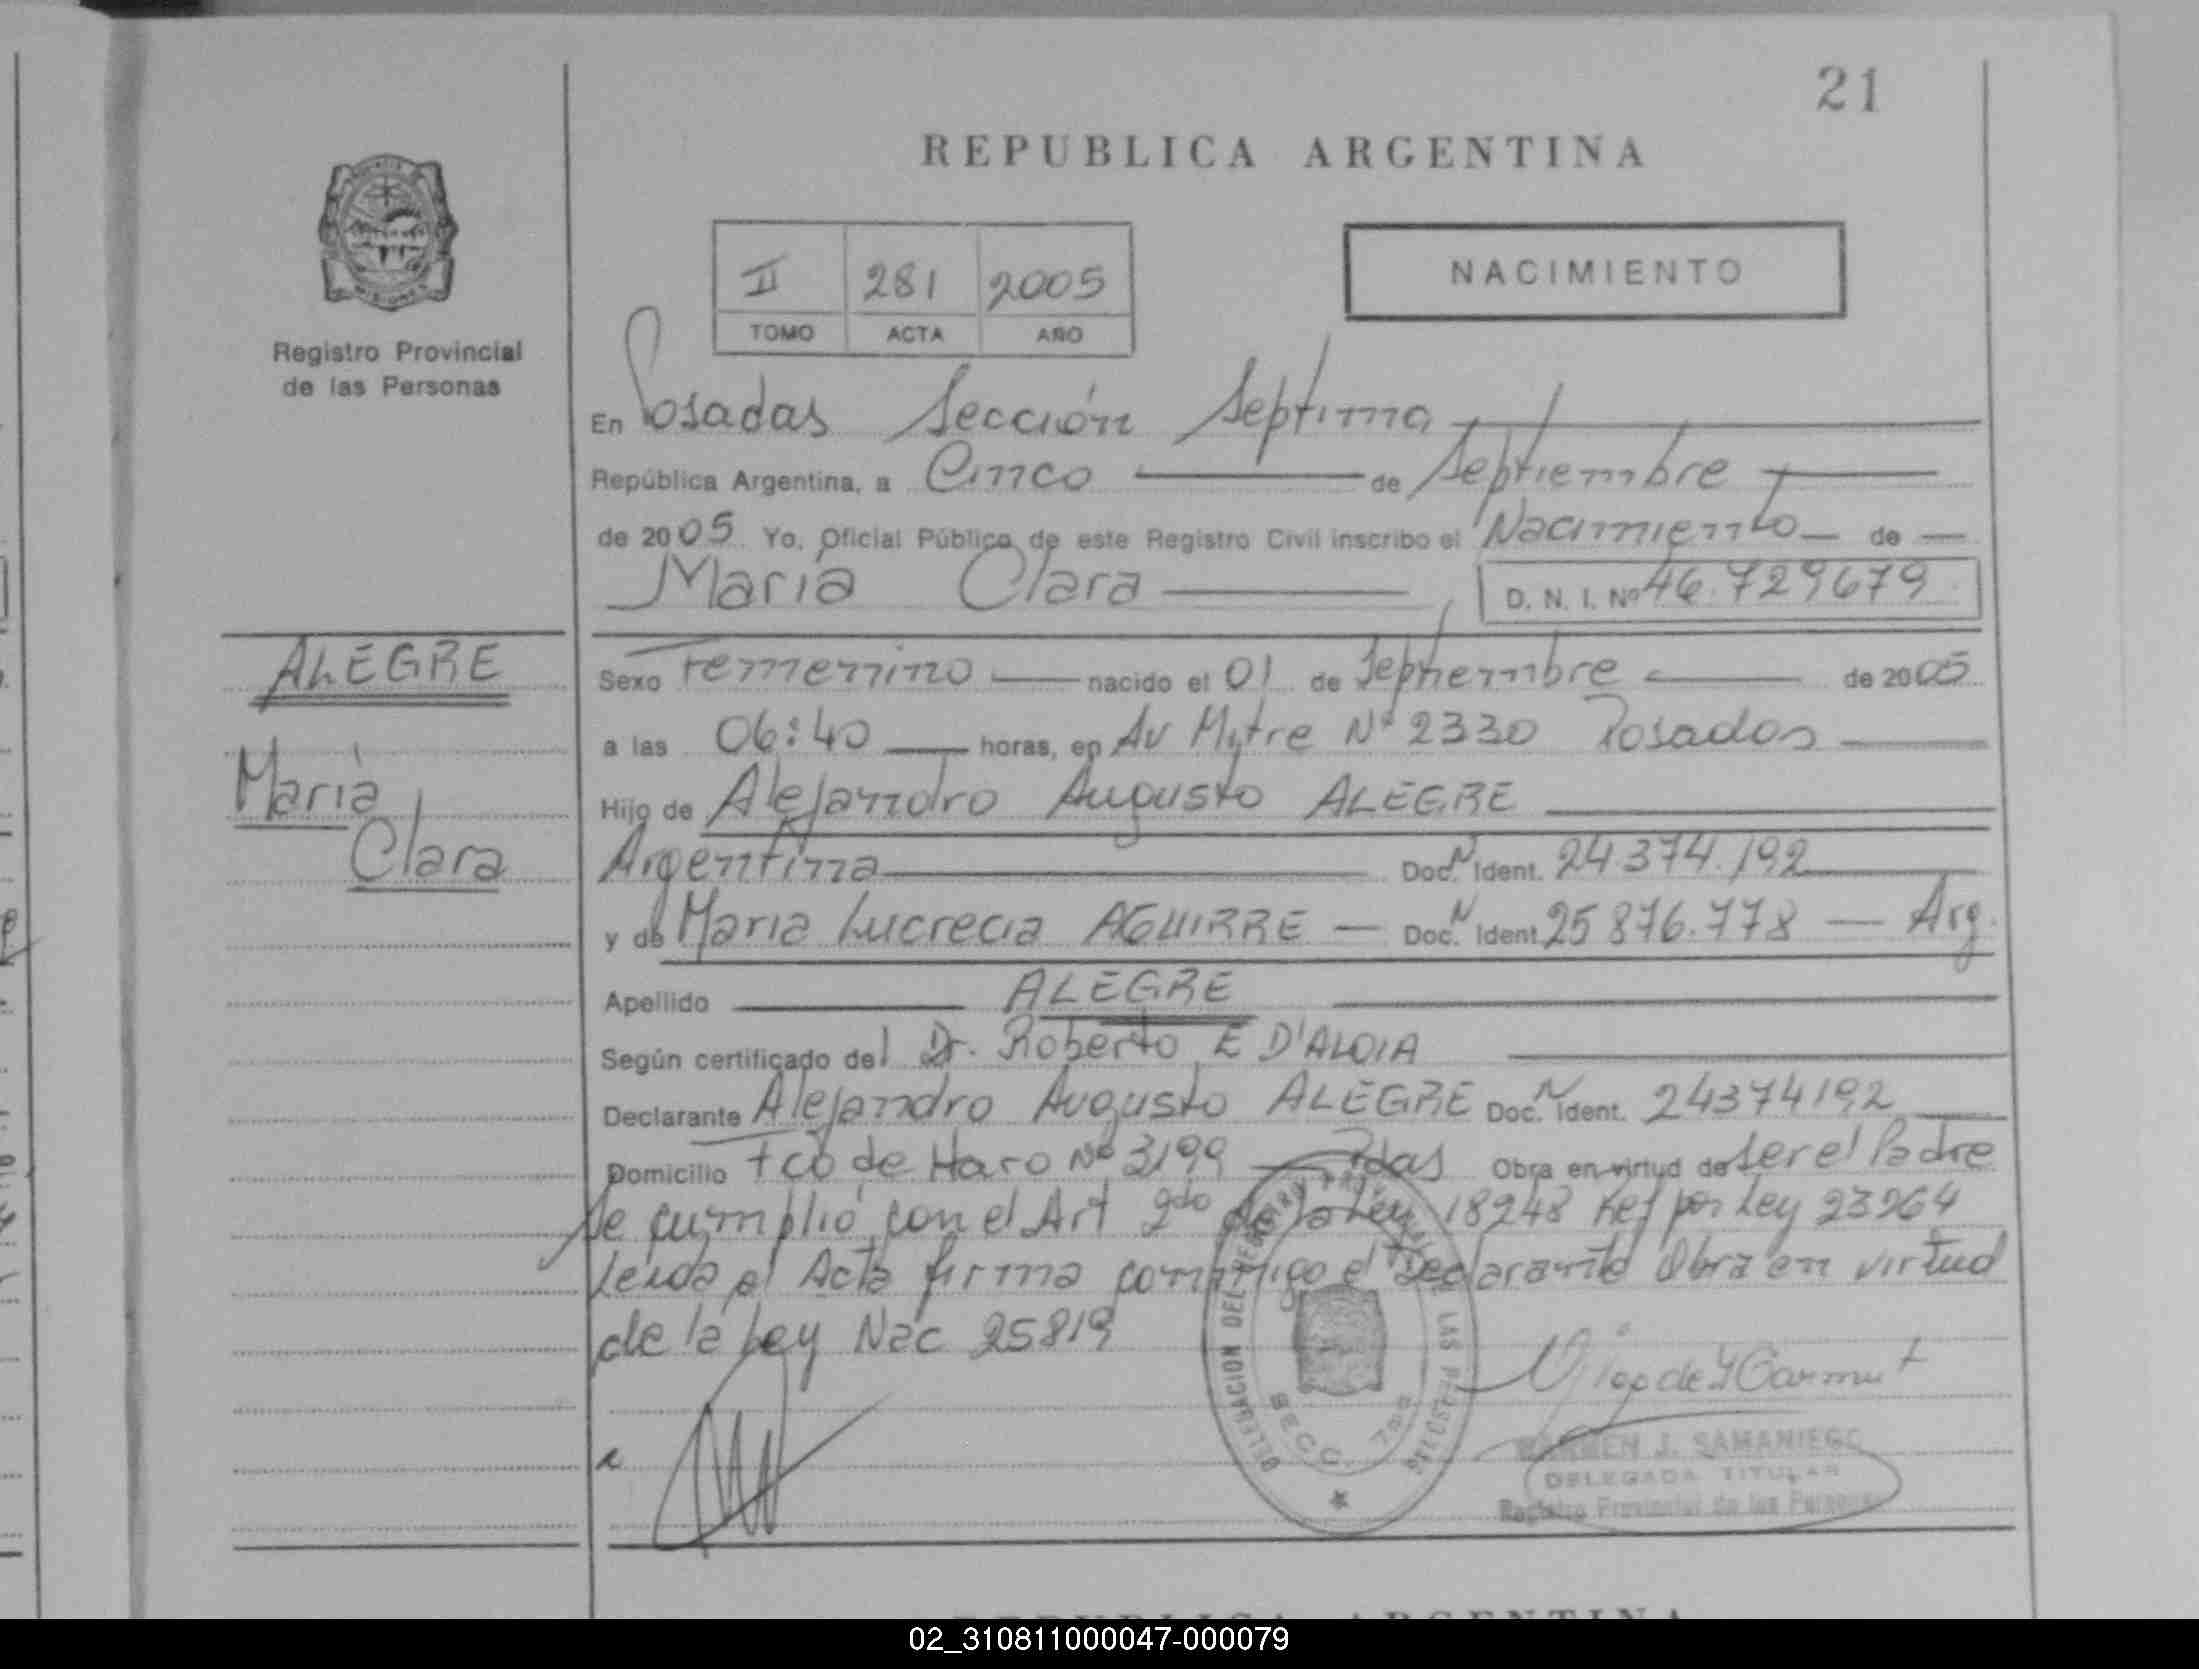 21
REPUBLICA ARGENTINA
MISIONES
Registro Provincial
de las Personas
II 281 2005
TOMO ACTA AÑO
NACIMIENTO
En Posadas Sección Septima
República Argentina, a Cinco de Septiembre
de 2005 Yo, Oficial Público de este Registro Civil inscribo el Nacimiento de
María Clara D. N. I. Nº 46.729679
ALEGRE
María
Clara
Sexo Femenino nacido el 01 de Septiembre de 2005
a las 06:40 horas, en Av Mytre Nº 2330 Posadas
Hijo de Alejandro Augusto ALEGRE
Argentina Doc. N Ident. 24374.192
y de Maria Lucrecia AGUIRRE Doc. N Ident 25876.778 Arg.
Apellido ALEGRE
Según certificado del Dr. Roberto E D'ALOIA
Declarante Alejandro Augusto ALEGRE Doc. N Ident. 24374192
Domicilio Fco de Haro Nº 3199 Pdas Obra en virtud de ser el Padre
Se cumplió con el Art 2do de la Ley 18248 Ref por Ley 23264
leida el Acta firma conmigo el Declarante Obra en virtud
de la Ley Nac 25819
DELEGACION DEL REGISTRO PROVINCIAL DE LAS PERSONAS
SECC. 7ma
CARMEN J. SAMANIEGO
DELEGADA TITULAR
Registro Provincial de las Personas
REPUBLICA ARGENTINA
02_310811000047-000079